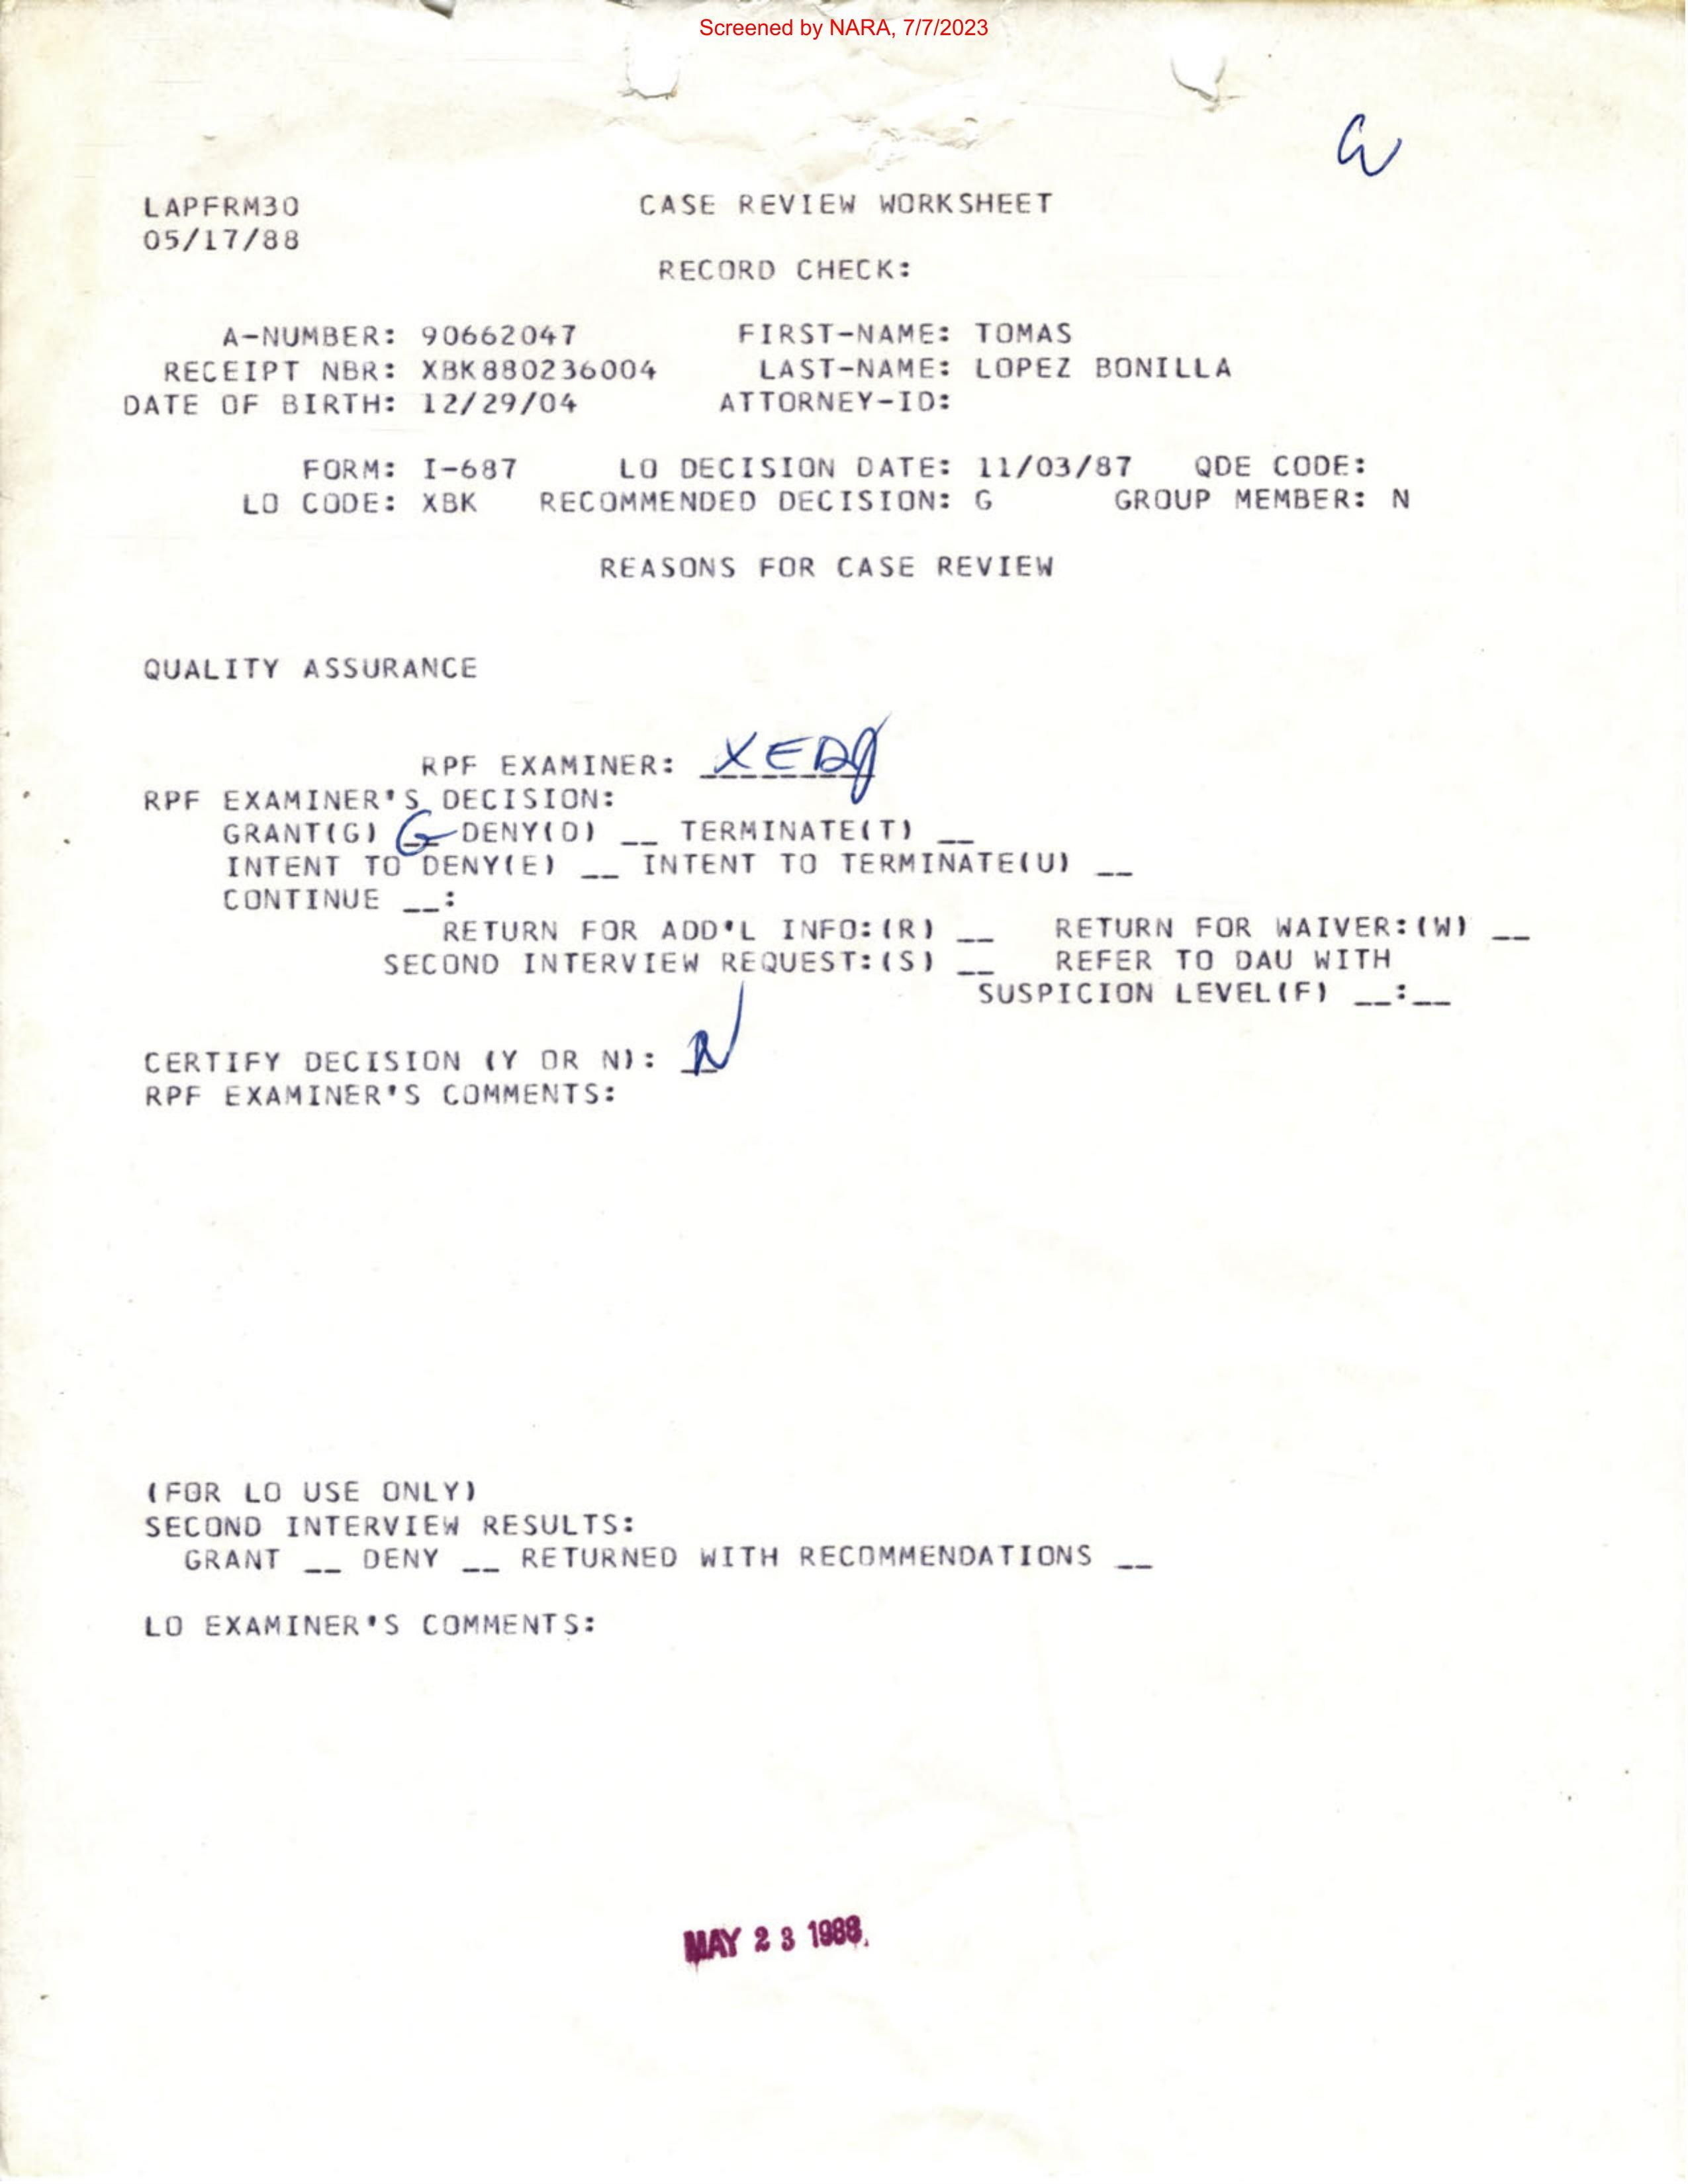 Screened by NARA, 7/7/2023
LAPFRM30 CASE REVIEW WORKSHEET
05/17/88
RECORD CHECK:
A-NUMBER: 90662047 FIRST-NAME: TOMAS
RECEIPT NBR: XBK880236004 LAST-NAME: LOPEZ BONILLA
DATE OF BIRTH: 12/29/04 ATTORNEY-ID:
FORM: I-687 LO DECISION DATE: 11/03/87 QDE CODE:
LO CODE: XBK RECOMMENDED DECISION: G GROUP MEMBER: N
REASONS FOR CASE REVIEW
QUALITY ASSURANCE
RPF EXAMINER:
RPF EXAMINER'S DECISION:
GRANT(G) G DENY(D) __ TERMINATE(T) __
INTENT TO DENY(E) __ INTENT TO TERMINATE(U) __
CONTINUE __:
RETURN FOR ADD'L INFO:(R) __ RETURN FOR WAIVER:(W) __
SECOND INTERVIEW REQUEST:(S) __ REFER TO DAU WITH
SUSPICION LEVEL(F) __:__
CERTIFY DECISION (Y OR N): N
RPF EXAMINER'S COMMENTS:
(FOR LO USE ONLY)
SECOND INTERVIEW RESULTS:
GRANT __ DENY __ RETURNED WITH RECOMMENDATIONS __
LO EXAMINER'S COMMENTS:
MAY 23 1988